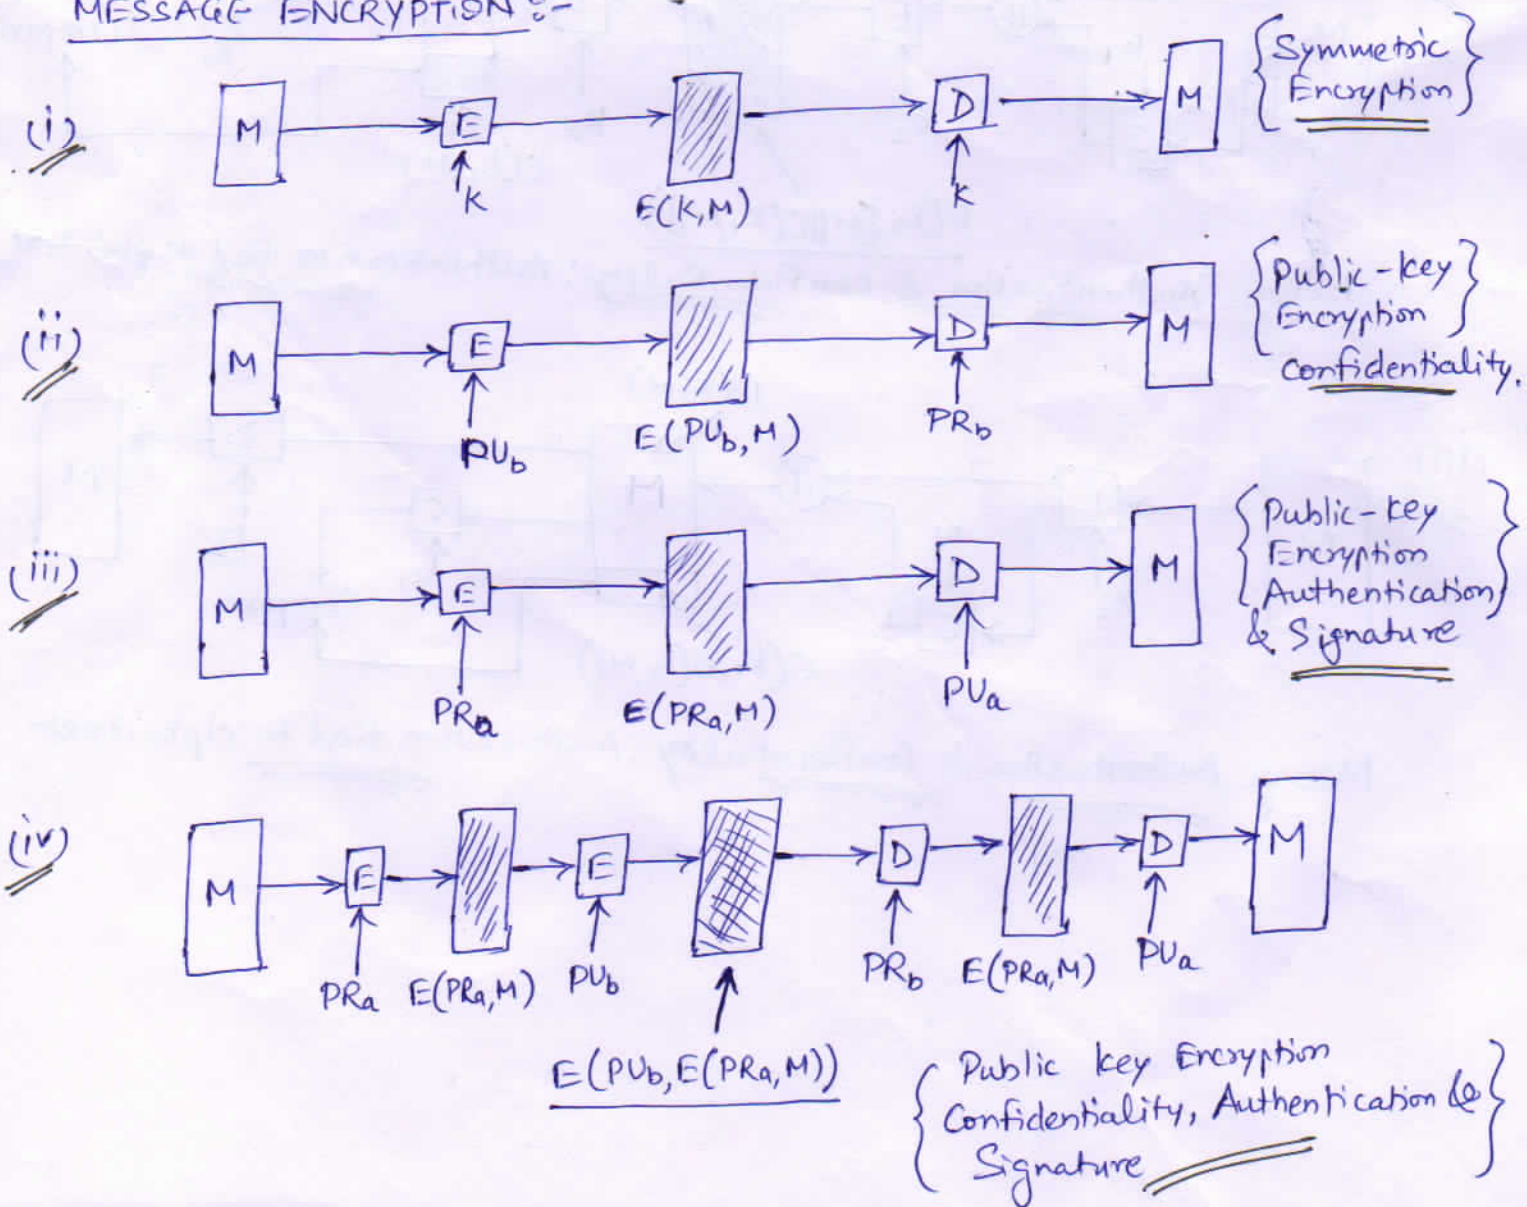 MESSAGE ENCRYPTION :-
(i)
M
E
K
E(K,M)
D
K
M
{Symmetric
Encryption}
(ii)
M
E
PUb
E(PUb,M)
D
PRb
M
{Public-key
Encryption}
Confidentiality.
(iii)
M
E
PRa
E(PRa,M)
D
PUa
M
{Public-key
Encryption
Authentication}
& Signature
(iv)
M
E
PRa
E(PRa,M)
E
PUb
E(PUb,E(PRa,M))
D
PRb
E(PRa,M)
D
PUa
M
{Public key Encryption
Confidentiality, Authentication &
Signature}